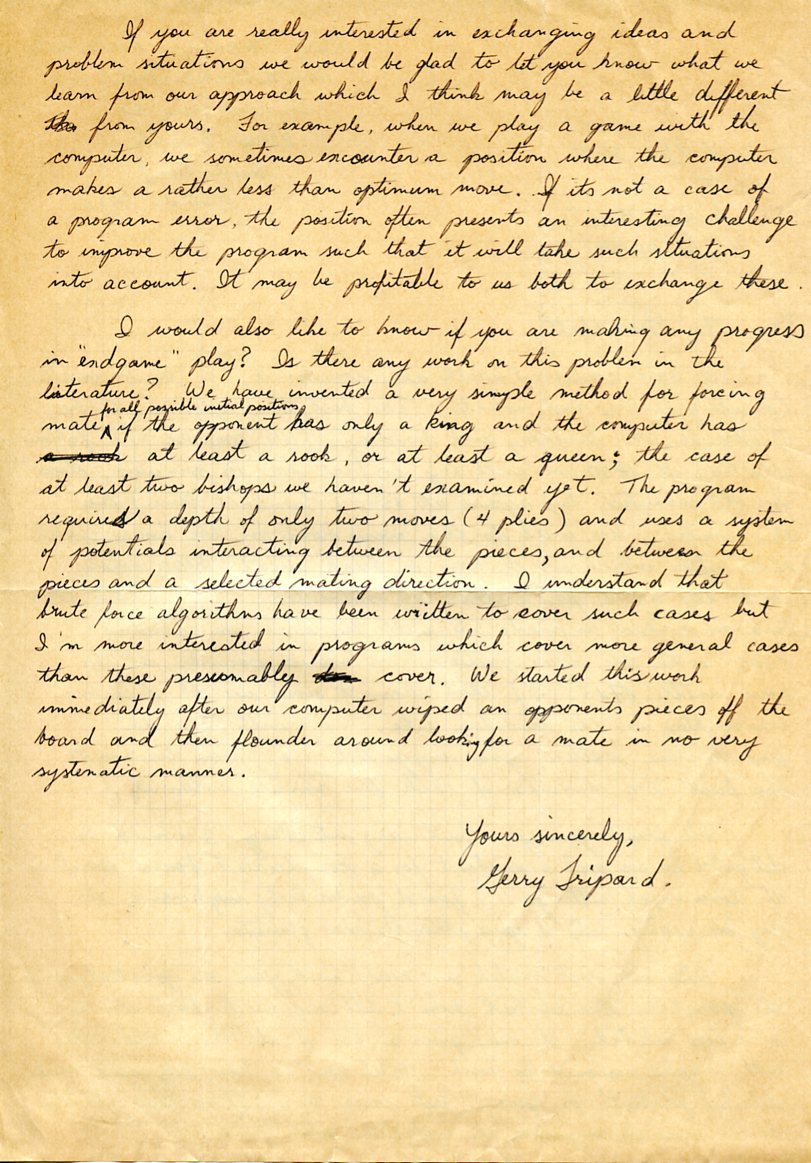 If you are really interested in exchanging ideas and
problem situations we would be glad to let you know what we
learn from our approach which I think may be a little different
from yours. For example, when we play a game with the
computer, we sometimes encounter a position where the computer
makes a rather less than optimum move. If its not a case of
a program error, the position often presents an interesting challenge
to improve the program such that it will take such situations
into account. It may be profitable to us both to exchange these.
I would also like to know if you are making any progress
in "endgame" play? Is there any work on this problem in the
literature? We have invented a very simple method for forcing
for all possible initial positions
mate if the opponent has only a king and the computer has
a rook at least a rook, or at least a queen; the case of
at least two bishops we haven't examined yet. The program
requires a depth of only two moves (4 plies) and uses a system
of potentials interacting between the pieces, and between the
pieces and a selected mating direction. I understand that
brute force algorithms have been written to cover such cases but
I'm more interested in programs which cover more general cases
than these presumably cover. We started this work
immediately after our computer wiped an opponents pieces off the
board and then flounder around looking for a mate in no very
systematic manner.
Yours sincerely,
Gerry Tripard.